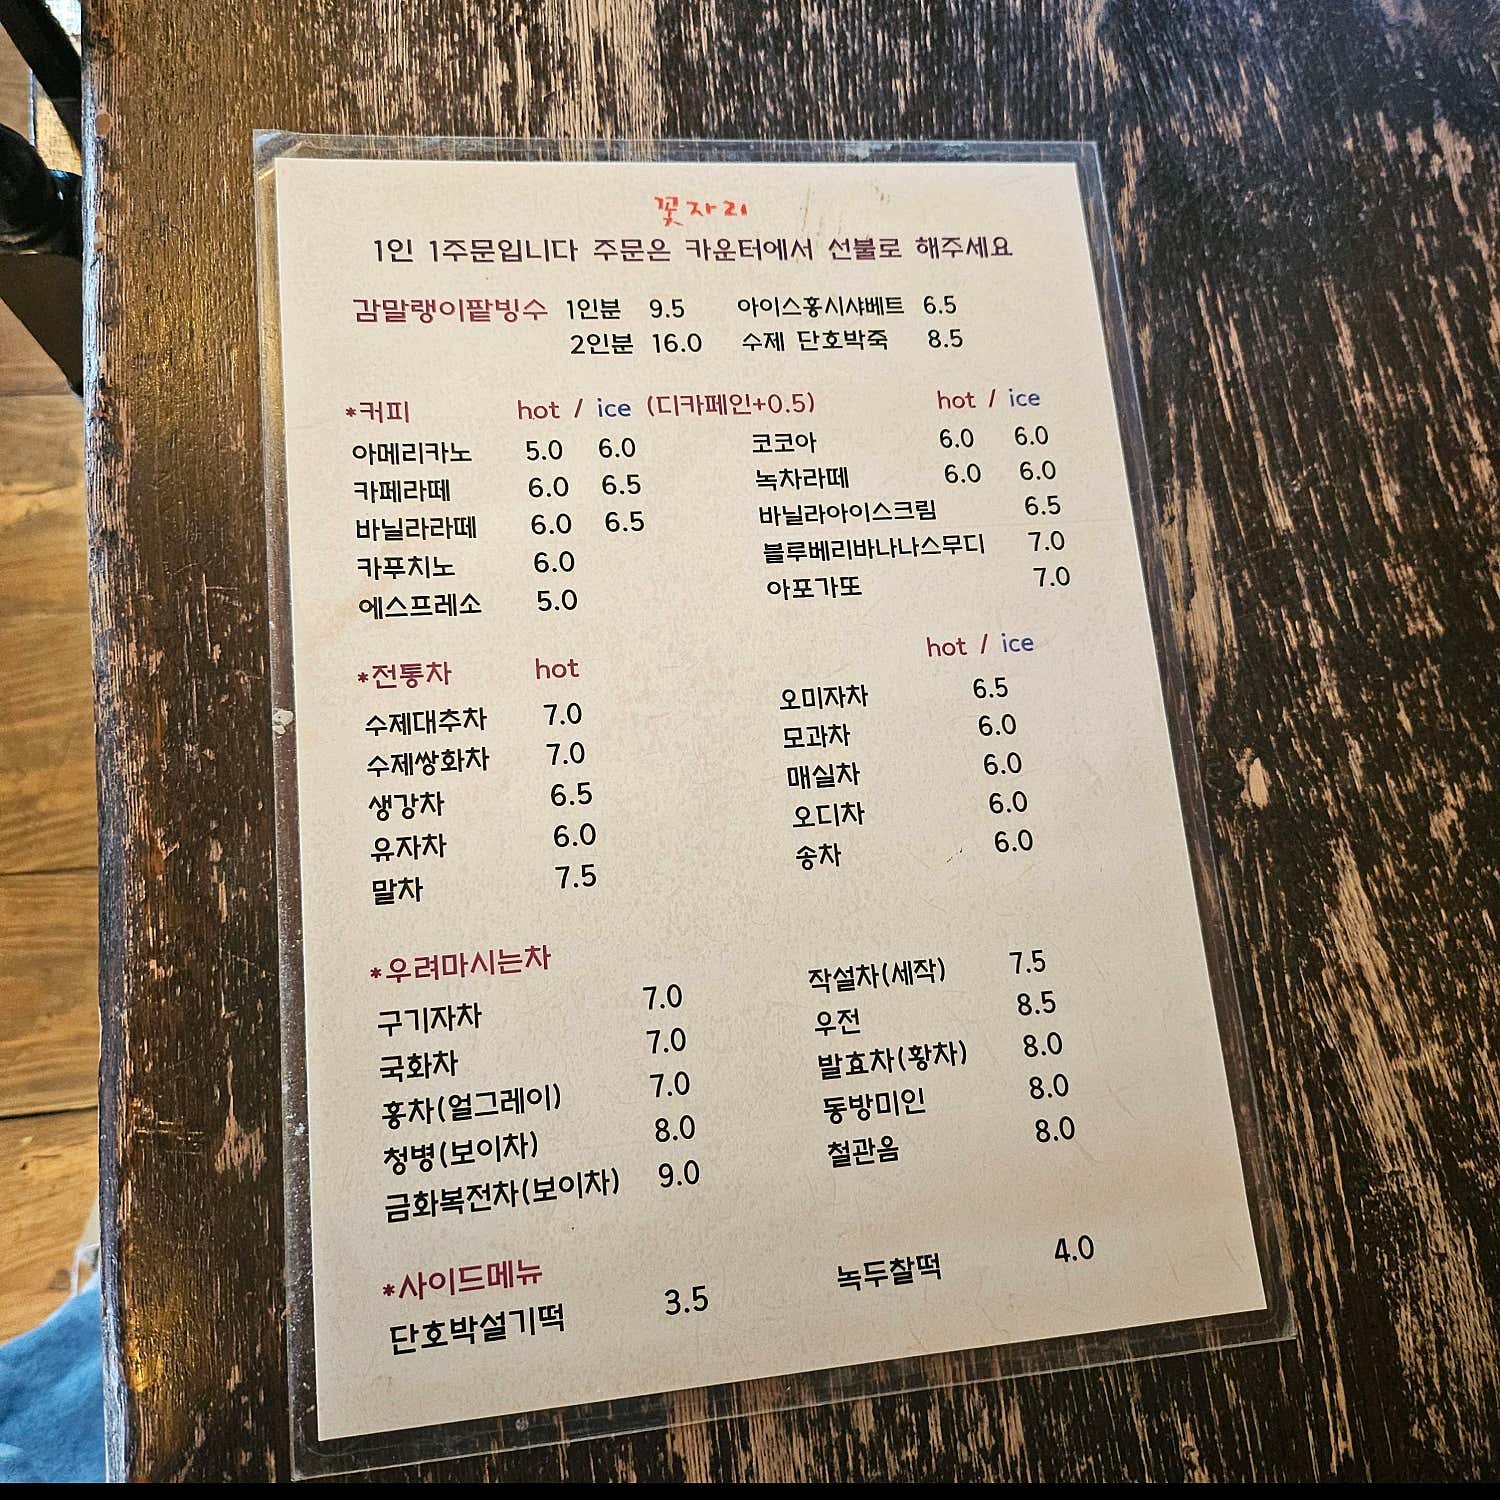 꽃자리
1인 1주문입니다 주문은 카운터에서 선불로 해주세요
감말랭이팥빙수 1인분 9.5 아이스홍시샤베트 6.5
2인분 16.0 수제 단호박죽 8.5
*커피 hot / ice (디카페인+0.5) hot / ice
아메리카노 5.0 6.0 코코아 6.0 6.0
카페라떼 6.0 6.5 녹차라떼 6.0 6.0
바닐라라떼 6.0 6.5 바닐라아이스크림 6.5
카푸치노 6.0 블루베리바나나스무디 7.0
에스프레소 5.0 아포가또 7.0
*전통차 hot hot / ice
수제대추차 7.0 오미자차 6.5
수제쌍화차 7.0 모과차 6.0
생강차 6.5 매실차 6.0
유자차 6.0 오디차 6.0
말차 7.5 송차 6.0
*우려마시는차
구기자차 7.0 작설차(세작) 7.5
국화차 7.0 우전 8.5
홍차(얼그레이) 7.0 발효차(황차) 8.0
청병(보이차) 8.0 동방미인 8.0
금화복전차(보이차) 9.0 철관음 8.0
*사이드메뉴
단호박설기떡 3.5 녹두찰떡 4.0